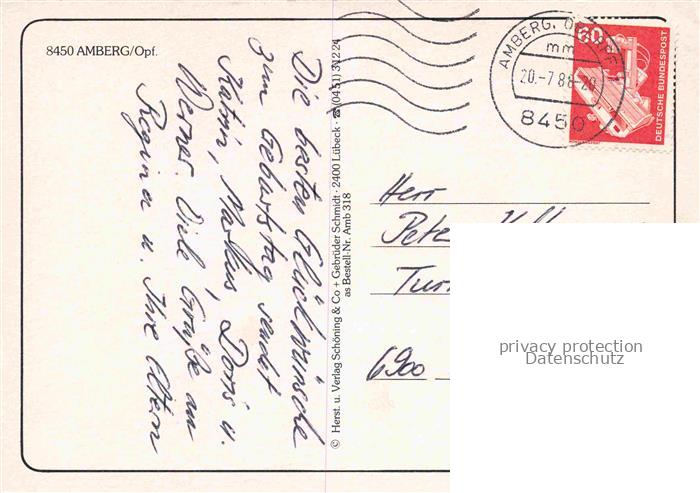 8450 AMBERG/Opf.
Die besten Glückwünsche
zum Geburtstag sendet
Katrin, Markus, Doris u.
Werner. Viele Grüße an
Regina u. Ihre Eltern
© Herst. u. Verlag Schöning & Co + Gebrüder Schmidt · 2400 Lübeck · ☎ (04 51) 3 12 24
as Bestell-Nr. Amb 318
AMBERG, OBERPF 1
mm
20.-7.88-20
8450
60
DEUTSCHE BUNDESPOST
Herr
Pete
Tur
6900
privacy protection
Datenschutz